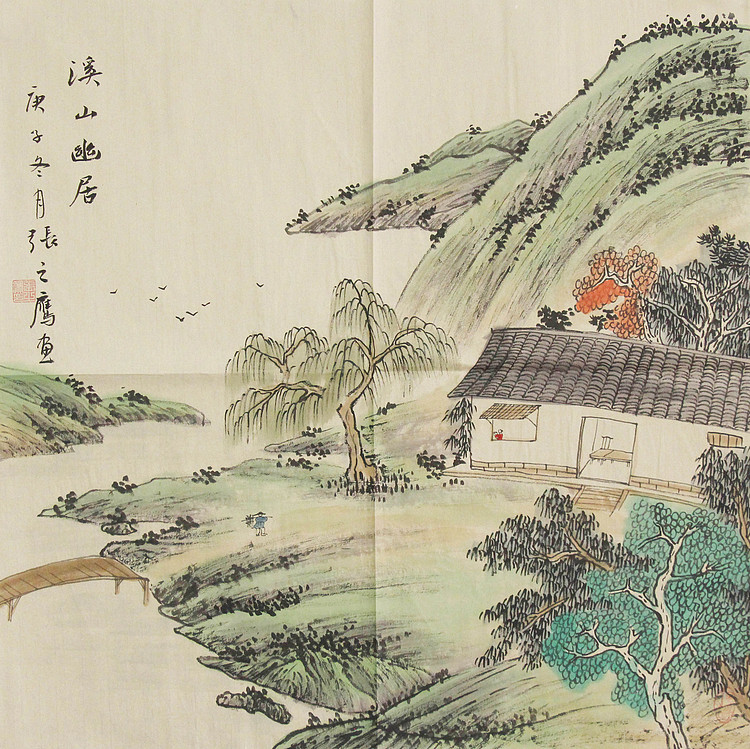 溪山幽居
庚子冬月張之鷹画